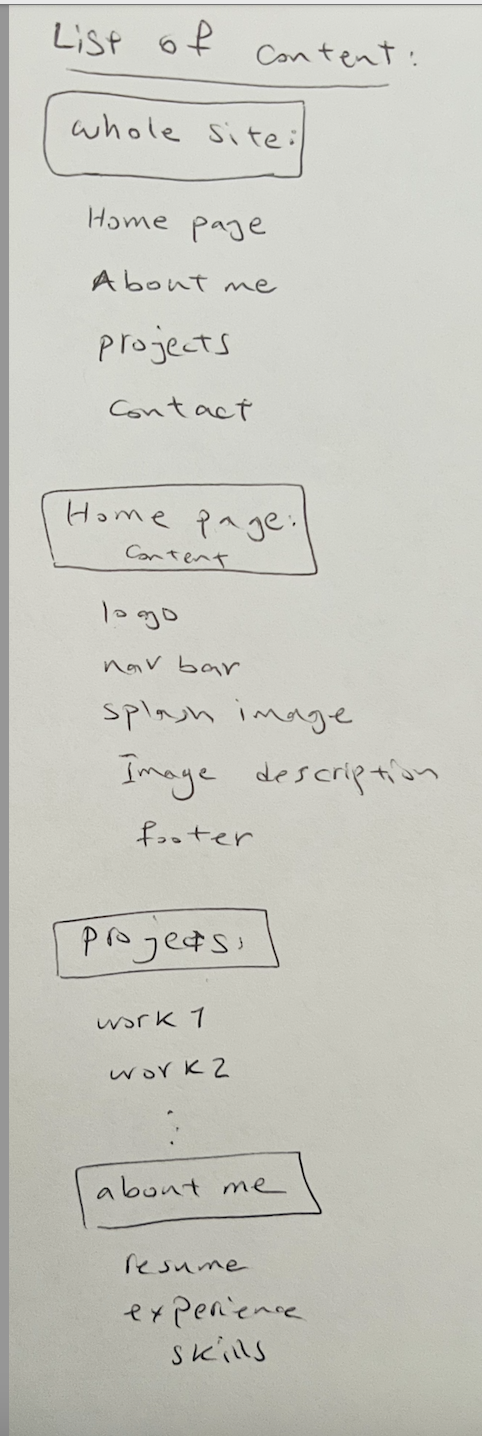 List of content:
whole site:
Home page
About me
projects
Contact
Home page:
Content
logo
nav bar
splash image
Image description
footer
projects:
work 1
work 2
⋮
about me
resume
experience
skills